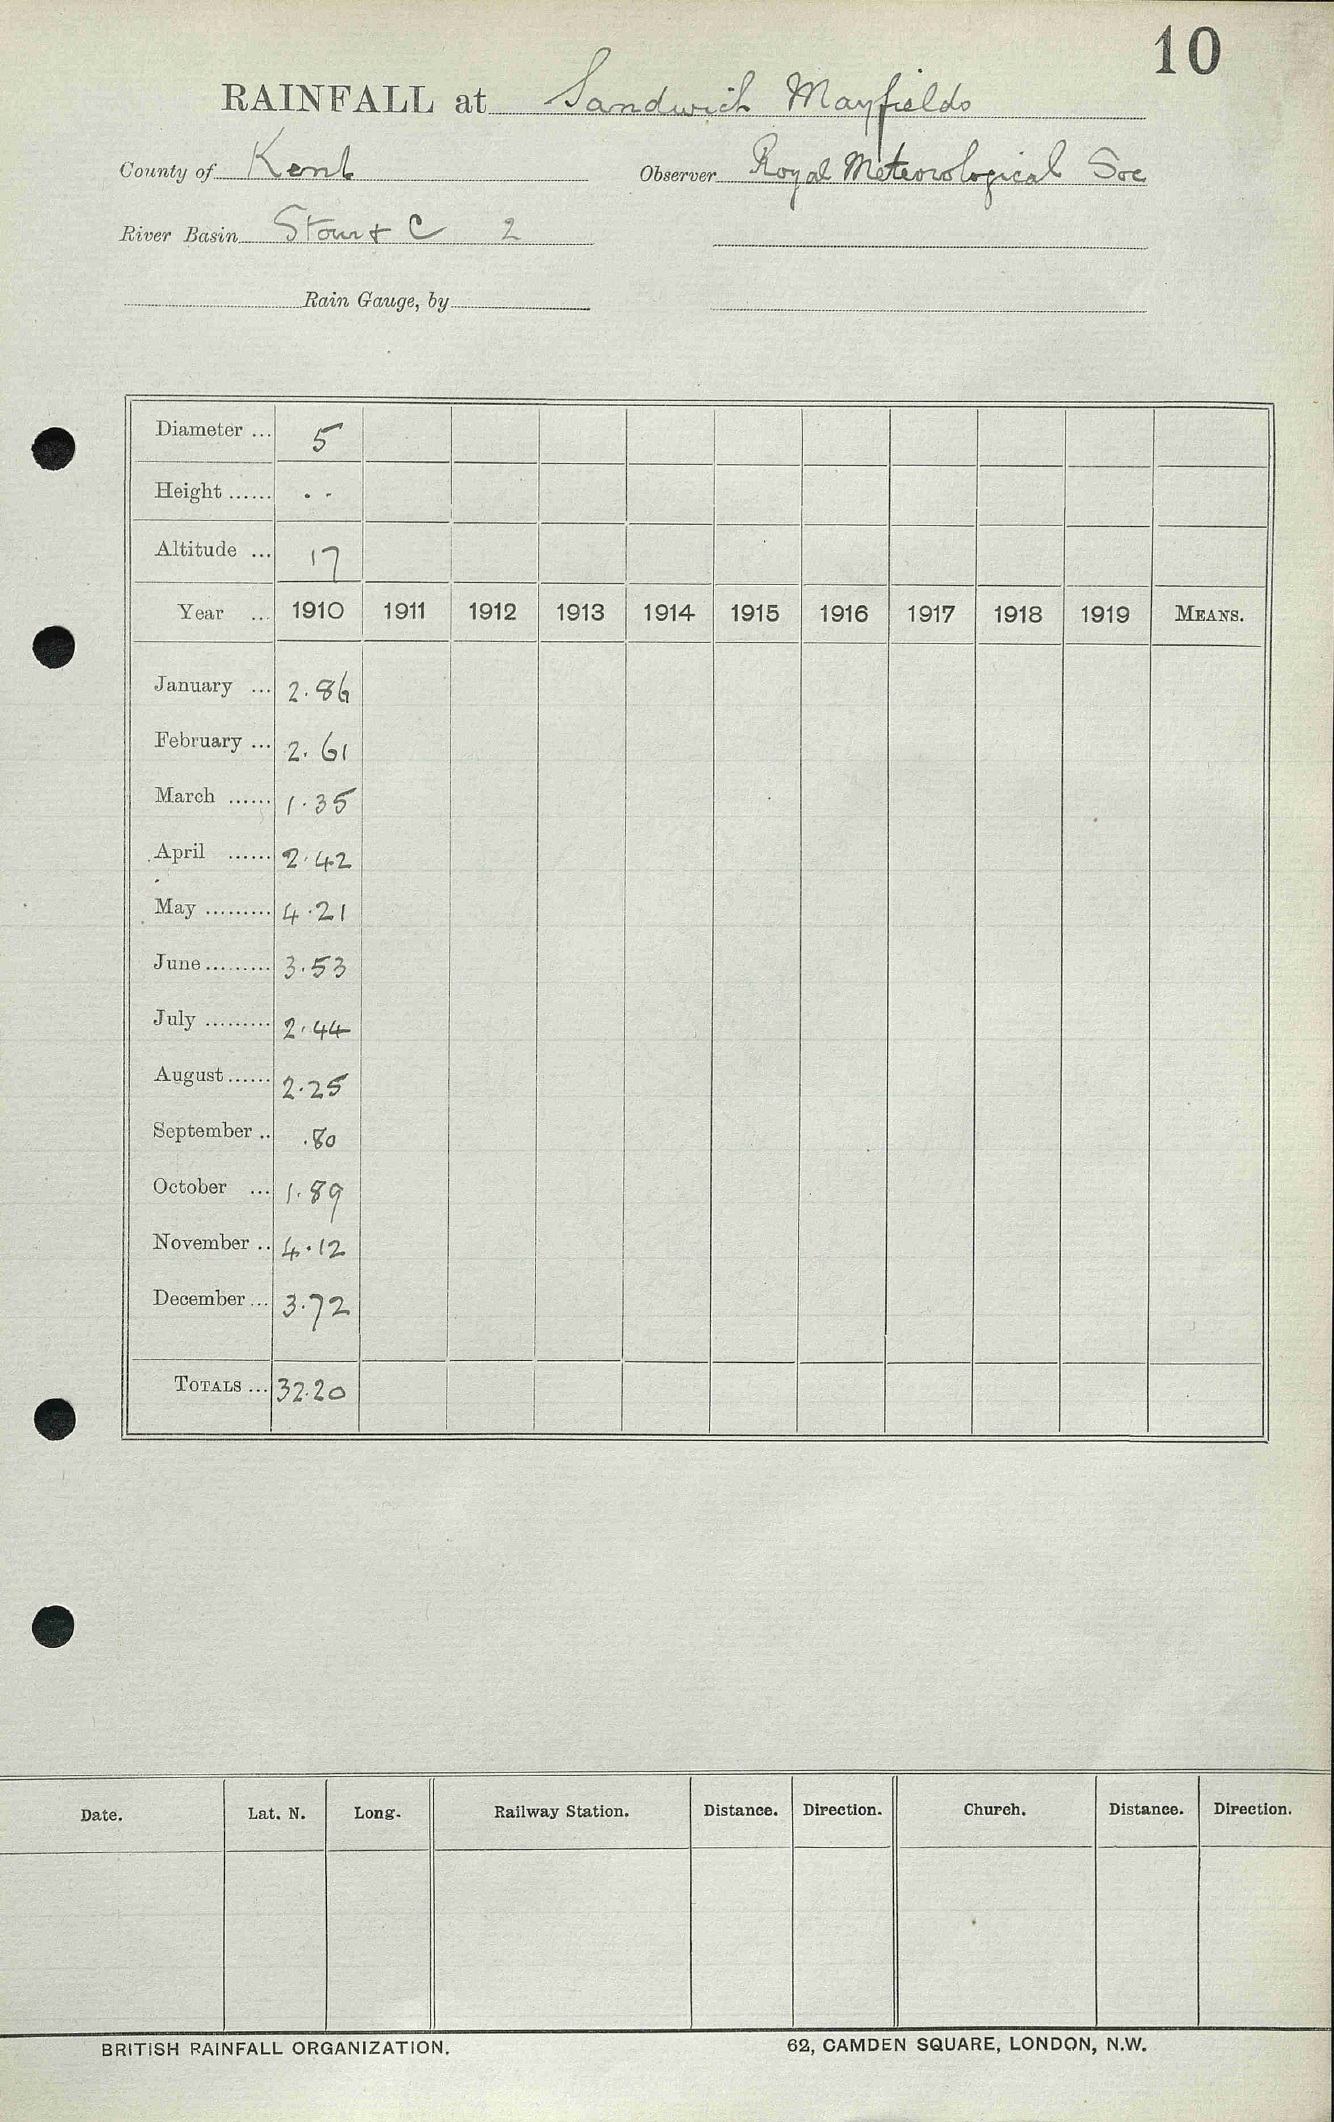 10
RAINFALL at Sandwich Mayfields
County of Kent Observer Royal Meteorological Soc
River Basin Stour & C 2
Rain Gauge, by
Diameter ... 5
Height ...... . .
Altitude ... 17
Year ... 1910 1911 1912 1913 1914 1915 1916 1917 1918 1919 MEANS.
January ... 2.86
February ... 2.61
March ...... 1.35
April ...... 2.42
May ......... 4.21
June ......... 3.53
July ......... 2.44
August ...... 2.25
September .. .80
October ... 1.89
November .. 4.12
December ... 3.72
TOTALS ... 32.20
Date. Lat. N. Long. Railway Station. Distance. Direction. Church. Distance. Direction.
BRITISH RAINFALL ORGANIZATION. 62, CAMDEN SQUARE, LONDON, N.W.